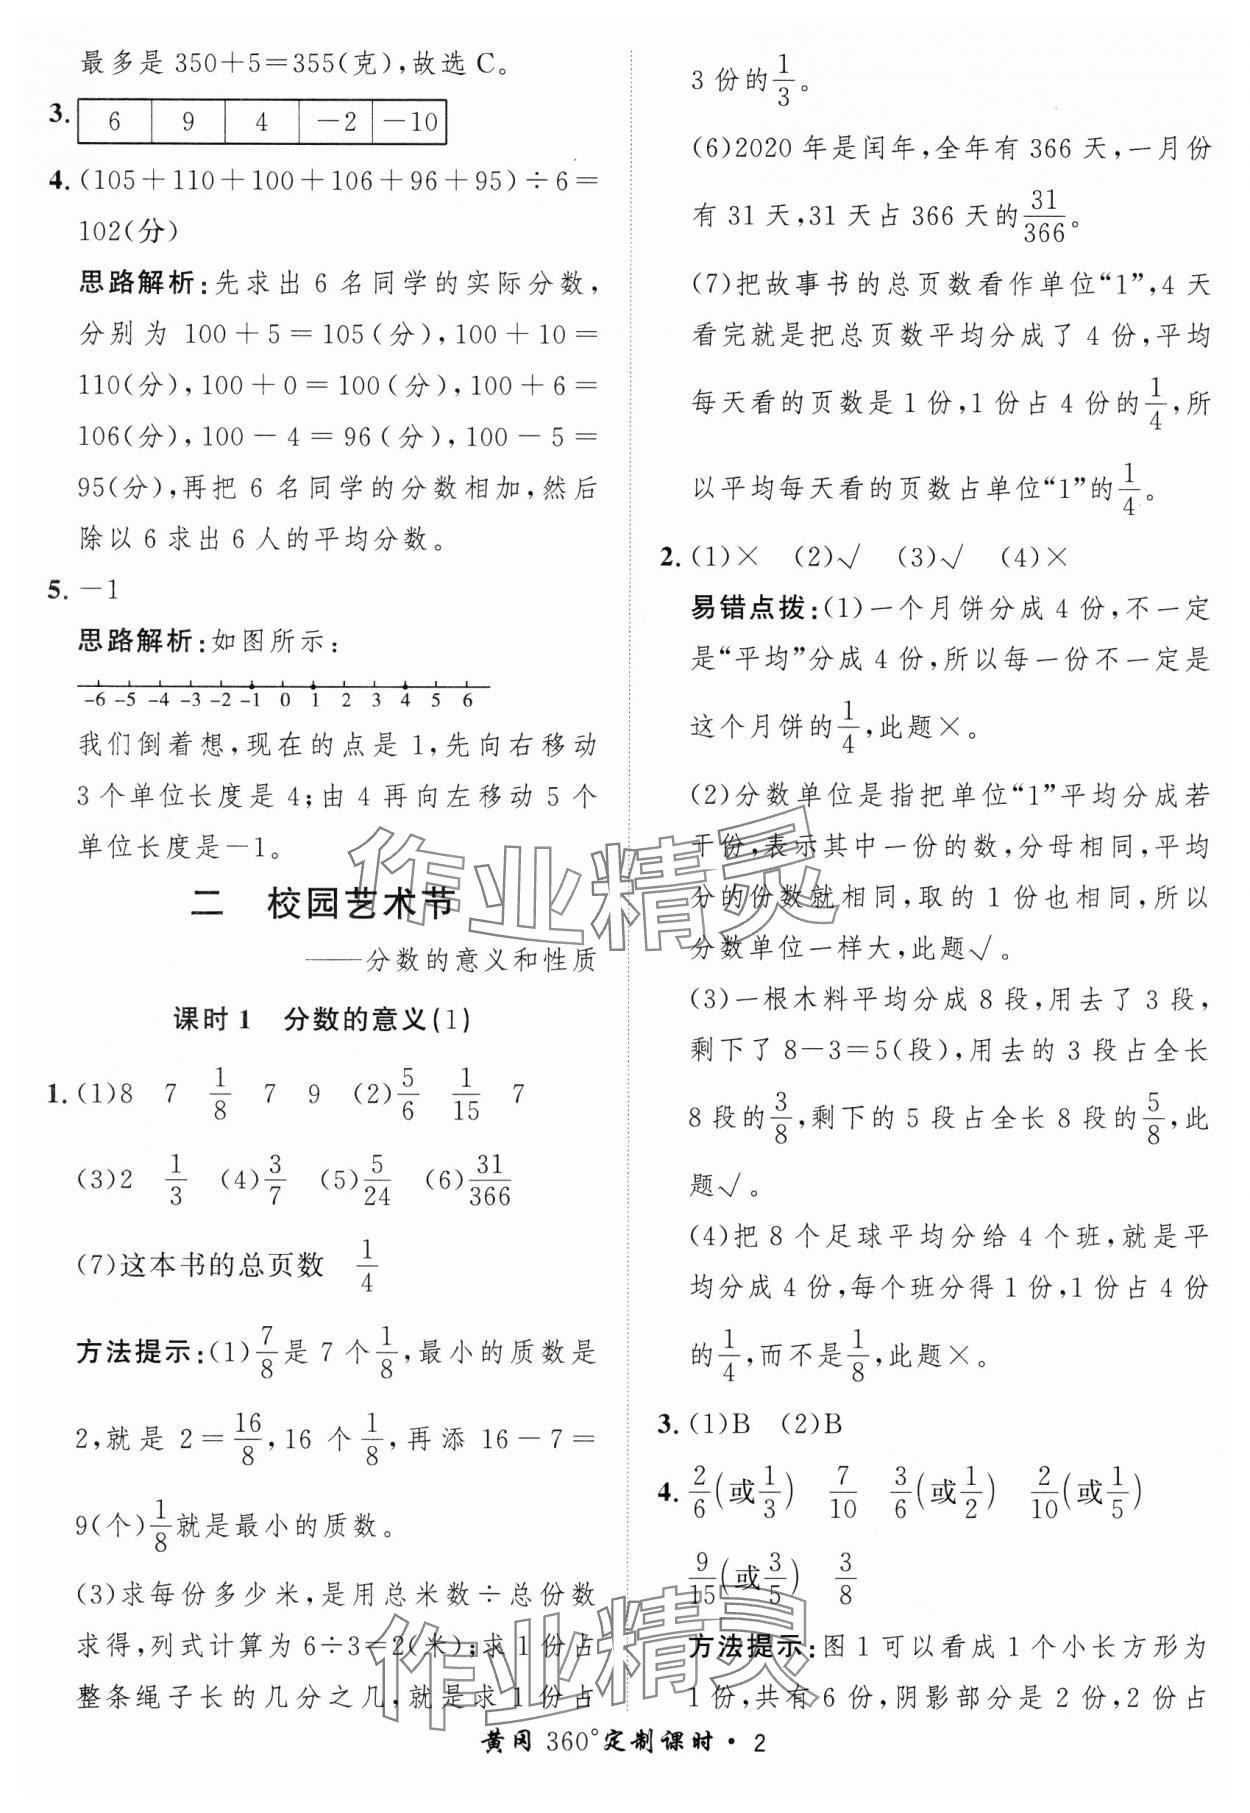 最多是 350＋5＝355(克),故选 C。
3. 6 9 4 －2 －10
4. (105＋110＋100＋106＋96＋95)÷6＝
102(分)
思路解析:先求出 6 名同学的实际分数,
分别为 100＋5＝105(分),100＋10＝
110(分),100＋0＝100(分),100＋6＝
106(分),100－4＝96(分),100－5＝
95(分),再把 6 名同学的分数相加,然后
除以 6 求出 6 人的平均分数。
5. －1
思路解析:如图所示:
-6 -5 -4 -3 -2 -1 0 1 2 3 4 5 6
我们倒着想,现在的点是 1,先向右移动
3 个单位长度是 4;由 4 再向左移动 5 个
单位长度是－1。
二 校园艺术节
——分数的意义和性质
课时 1 分数的意义(1)
1. (1)8 7 1/8 7 9 (2)5/6 1/15 7
(3)2 1/3 (4)3/7 (5)5/24 (6)31/366
(7)这本书的总页数 1/4
方法提示:(1)7/8是 7 个1/8,最小的质数是
2,就是 2＝16/8,16 个1/8,再添 16－7＝
9(个)1/8就是最小的质数。
(3)求每份多少米,是用总米数÷总份数
求得,列式计算为 6÷3＝2(米);求 1 份占
整条绳子长的几分之几,就是求 1 份占
3 份的1/3。
(6)2020 年是闰年,全年有 366 天,一月份
有 31 天,31 天占 366 天的31/366。
(7)把故事书的总页数看作单位“1”,4 天
看完就是把总页数平均分成了 4 份,平均
每天看的页数是 1 份,1 份占 4 份的1/4,所
以平均每天看的页数占单位“1”的1/4。
2. (1)× (2)√ (3)√ (4)×
易错点拨:(1)一个月饼分成 4 份,不一定
是“平均”分成 4 份,所以每一份不一定是
这个月饼的1/4,此题×。
(2)分数单位是指把单位“1”平均分成若
干份,表示其中一份的数,分母相同,平均
分的份数就相同,取的 1 份也相同,所以
分数单位一样大,此题√。
(3)一根木料平均分成 8 段,用去了 3 段,
剩下了 8－3＝5(段),用去的 3 段占全长
8 段的3/8,剩下的 5 段占全长 8 段的5/8,此
题√。
(4)把 8 个足球平均分给 4 个班,就是平
均分成 4 份,每个班分得 1 份,1 份占 4 份
的1/4,而不是1/8,此题×。
3. (1)B (2)B
4. 2/6(或1/3) 7/10 3/6(或1/2) 2/10(或1/5)
9/15(或3/5) 3/8
方法提示:图 1 可以看成 1 个小长方形为
1 份,共有 6 份,阴影部分是 2 份,2 份占
黄冈 360°定制课时·2
作业精灵
作业精灵